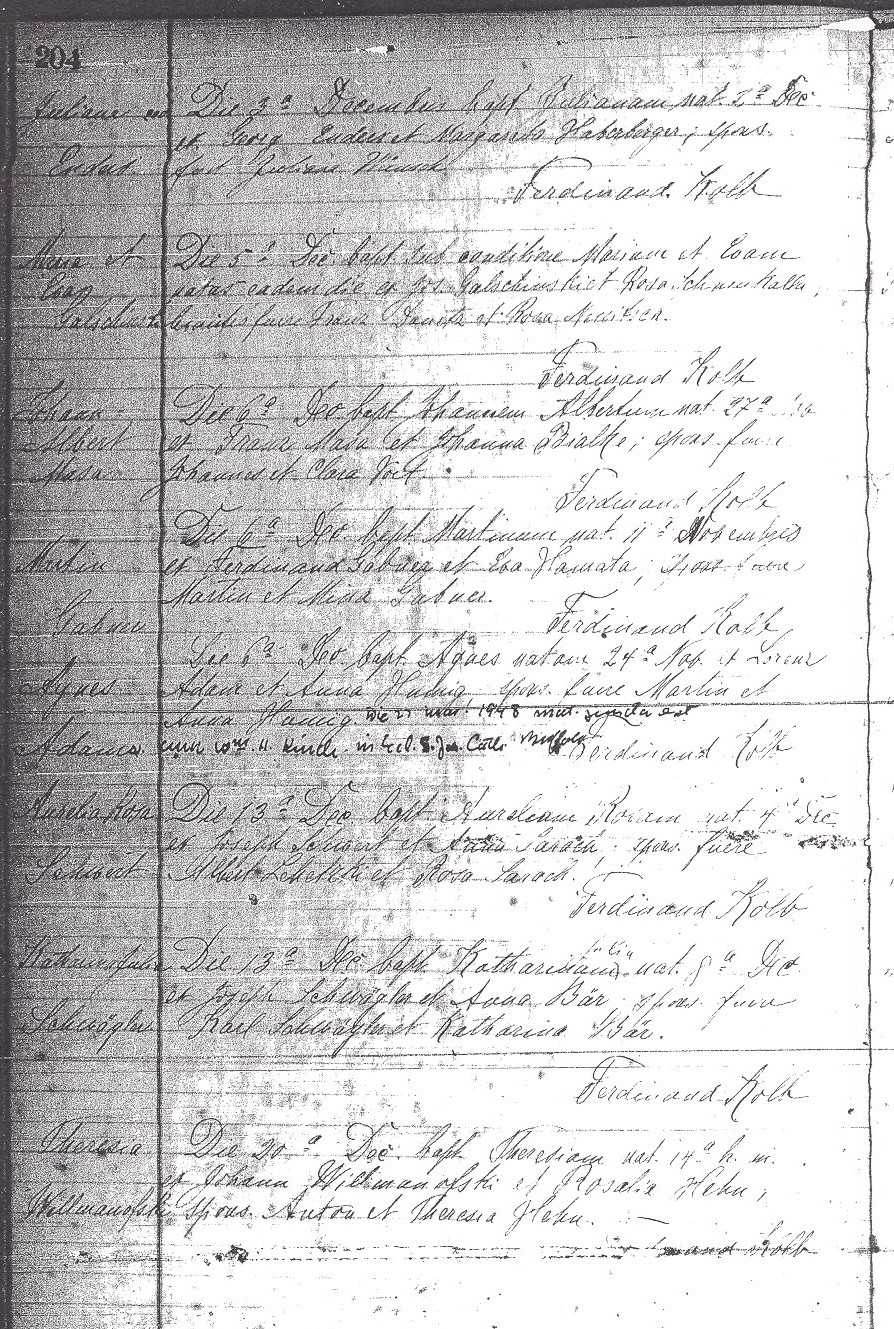 204
Juliane
Enders
Die 3ª Decembris bapt Julianam nat. 2ª Dec
ex Georg Enders et Margareta Haberberger; spons.
fuit Juliana Wunsch
Ferdinand Kolb
Maria et
Evan
Die 5ª Dec. bapt sub conditione Mariam et Evam
natas eadem die ex Jos. Galschinski et Rosa
fuere Franz et Rosa
Ferdinand Kolb
Johann
Albert
Masa
Die 6ª Dec bapt Johannem Albertum nat. 27ª
ex Franz Masa et Johanna Bialke; spons. fuere
Johannes et Clara Voit.
Ferdinand Kolb
Martin
Gabner
Die 6ª Dec bapt Martinum nat. 11ª Novembris
ex Ferdinand Gabner et Eva Hamata; spons. fuere
Martin et Mina Gabner.
Ferdinand Kolb
Agnes
Adams
Die 6ª Dec bapt. Agnes natam 24ª Nov. ex Lorenz
Adam et Anna Hunig spons. fuere Martin et
Anna Hunig Die 27 1948 mat. juncta est
cum in Eccl. S. Jos. Buffalo
Ferdinand Kolb
Aurelia Rosa
Schubert
Die 13ª Dec bapt Aureliam Rosam nat. 4ª Dec
ex Joseph et Anna Sarach; spons. fuere
Albert et Rosa Sarach.
Ferdinand Kolb
Katharina Julia
Schwägler
Die 13ª Dec bapt Katharinam Julia nat. 9ª Dec
ex Joseph Schwägler et Anna Bär; spons. fuere
Karl Schwägler et Katharina Bär.
Ferdinand Kolb
Theresia
Willmanofski
Die 20ª Dec. bapt Theresiam nat. 14ª h. m.
ex Johann Willmanofski et Rosalia Hehn;
spons. Anton et Theresia Hehn.
Kolb